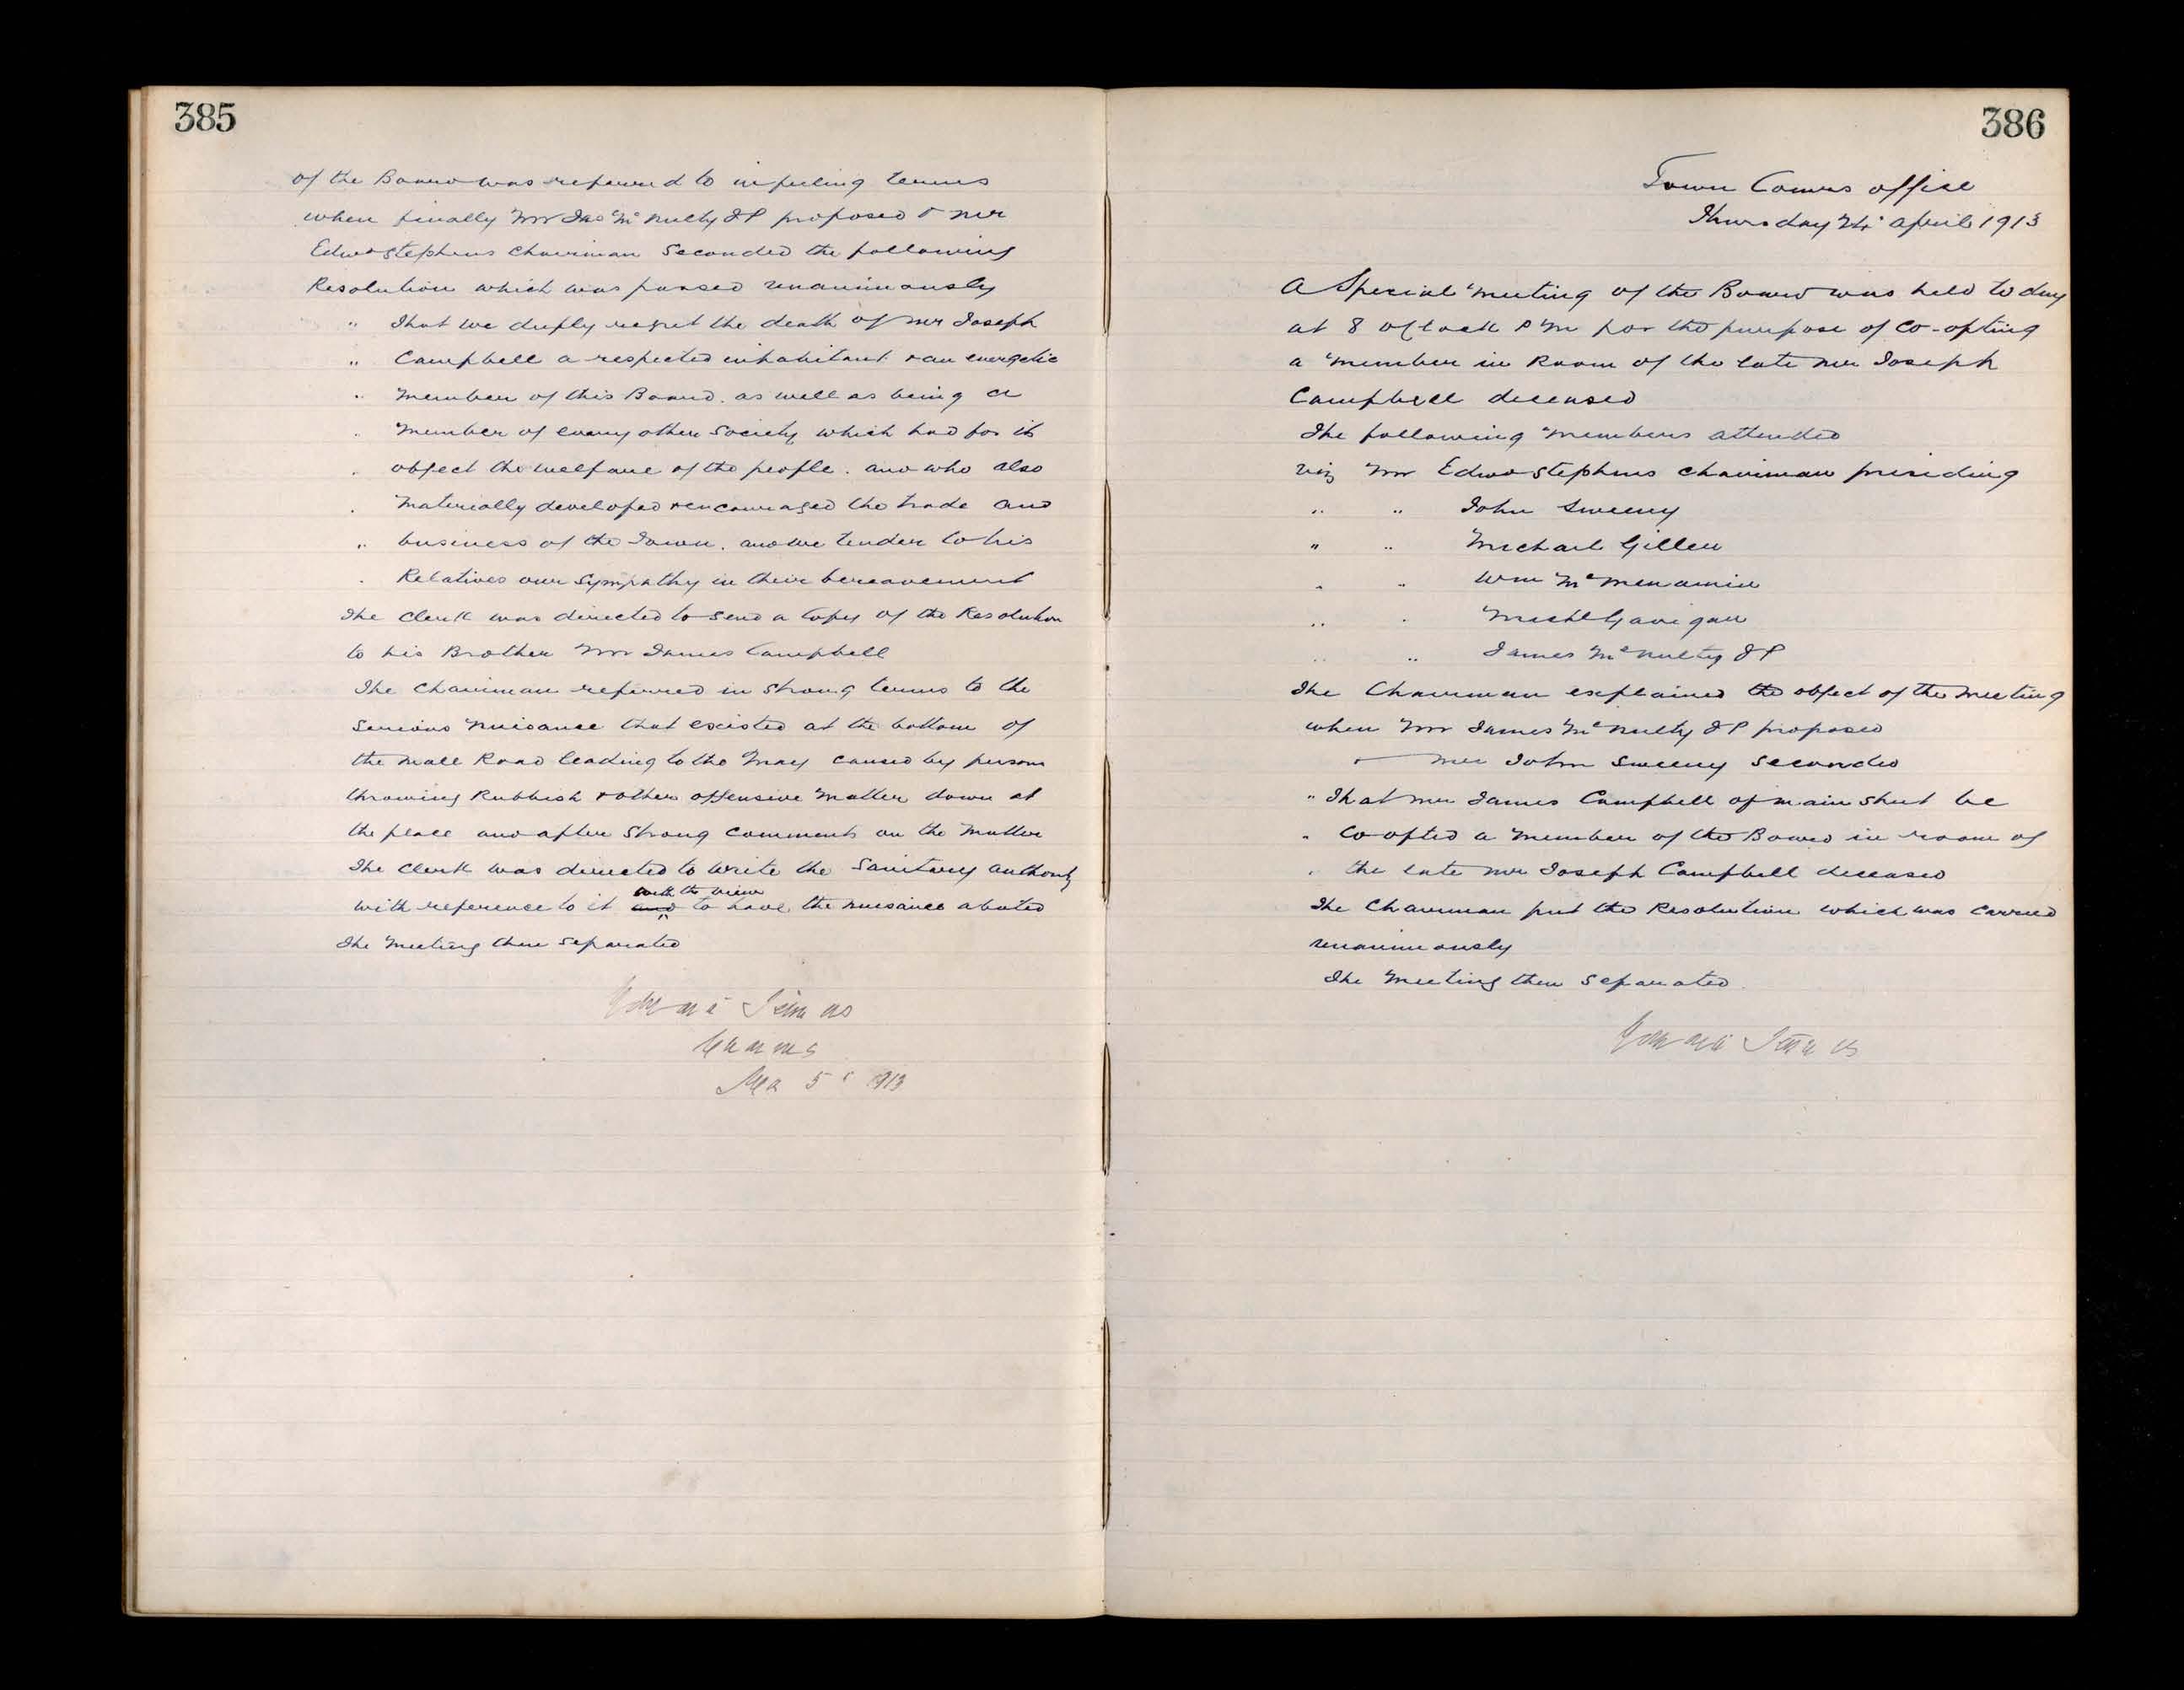 385
of the Board was referred to in feeling terms
when finally Mr Jas Mc Nulty JP proposed & Mr
Edwd Stephens Chairman Seconded the following
Resolution which was passed unanimously
" That we deeply regret the death of Mr Joseph
" Campbell a respected inhabitant & an energetic
" Member of this Board. as well as being a
" Member of every other Society which had for its
" object the welfare of the people. and who also
" Materially developed & encouraged the trade and
" business of the Town. and we tender to his
" Relatives our Sympathy in their bereavement
The Clerk was directed to send a Copy of the Resolution
to his Brother Mr James Campbell
The Chairman referred in strong terms to the
Serious Nuisance that existed at the bottom of
the Mall Road leading to the caused by persons
throwing Rubbish & other offensive Matter down at
the place and after Strong Comments on the Matter
The Clerk was directed to write the Sanitary Authority
with the view
with reference to it and to have the nuisance abated
The Meeting then Separated
1913
386
Town Comrs office
Thursday 24th April 1913
A Special Meeting of the Board was held to day
at 8 oClock PM for the purpose of Co-opting
a Member in Room of the late Mr Joseph
Campbell deceased
The following Members attended
viz Mr Edwd Stephens Chairman presiding
" " John Sweeny
" " Michael Gillen
" " Wm McMenamin
" " Michl Gavigan
" " James McNulty JP
The Chairman explained the object of the Meeting
when Mr James McNulty JP proposed
& Mr John Sweeny Seconded
" That Mr James Campbell of Main Street be
" Co-opted a Member of the Board in room of
" the late Mr Joseph Campbell deceased
The Chairman put the Resolution which was Carried
unanimously
The Meeting then Separated